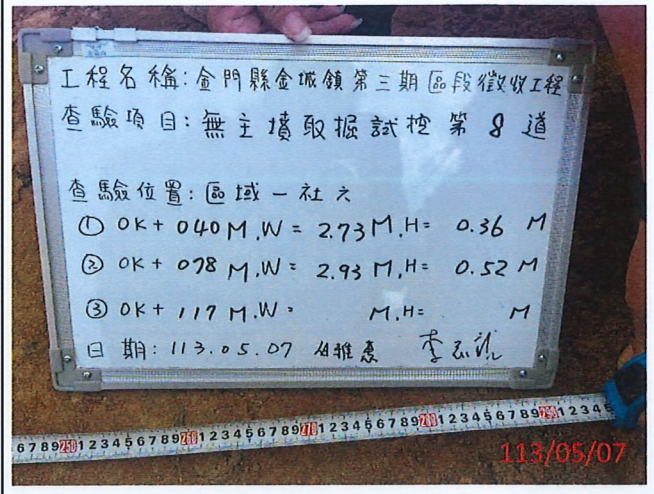 工程名稱:金門縣金城鎮第三期區段徵收工程
查驗項目:無主墳取掘試挖第8道
查驗位置:區域一社六
① 0K+040M.W=2.73M.H=0.36M
② 0K+078M.W=2.93M.H=0.52M
③ 0K+117M.W= M.H= M
日期:113.05.07
6 7 8 9 250 1 2 3 4 5 6 7 8 9 260 1 2 3 4 5 6 7 8 9 270 1 2 3 4 5 6 7 8 9 280 1 2 3 4 5 6 7 8 9 290 1 2 3 4 5
113/05/07